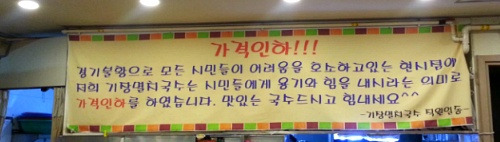 가격인하!!!
경기불황으로 모든 시민들이 어려움을 호소하고있는 현시점에
저희 기장멸치국수는 시민들에게 용기와 힘을 내시라는 의미로
가격인하를 하였습니다. 맛있는 국수드시고 힘내세요^^
-기장멸치국수 직원일동-